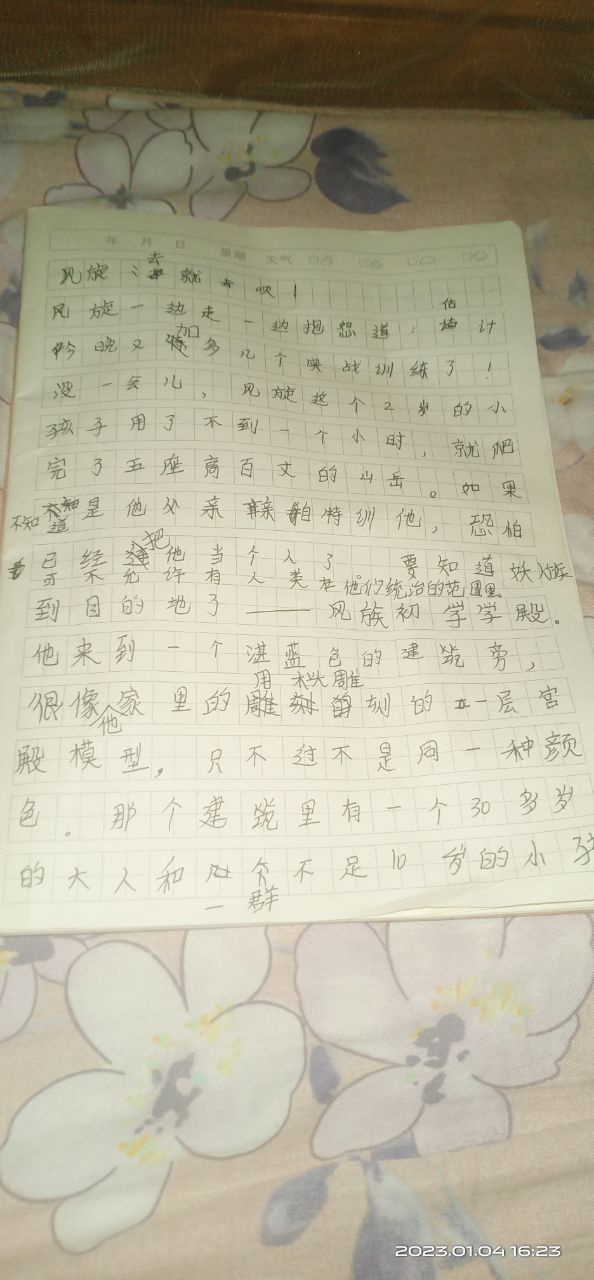 年 月 日 星期 天气
风旋：去就去呗！
风旋一边走一边抱怨道：估计
今晚又加多几个实战训练了！
没一会儿，风旋这个2岁的小
孩子用了不到一个小时，就爬
完了五座高百丈的山岳。如果
不知道是他父亲特训他，恐怕
已经把他当个人了。要知道妖族
不允许有人类在他们统治的范围里
到目的地了——风族初学学殿。
他来到一个湛蓝色的建筑旁，
很像他家里的用木头雕刻的一层宫
殿模型，只不过不是同一种颜
色。那个建筑里有一个30多岁
的大人和一群不足10岁的小孩
2023.01.04 16:23